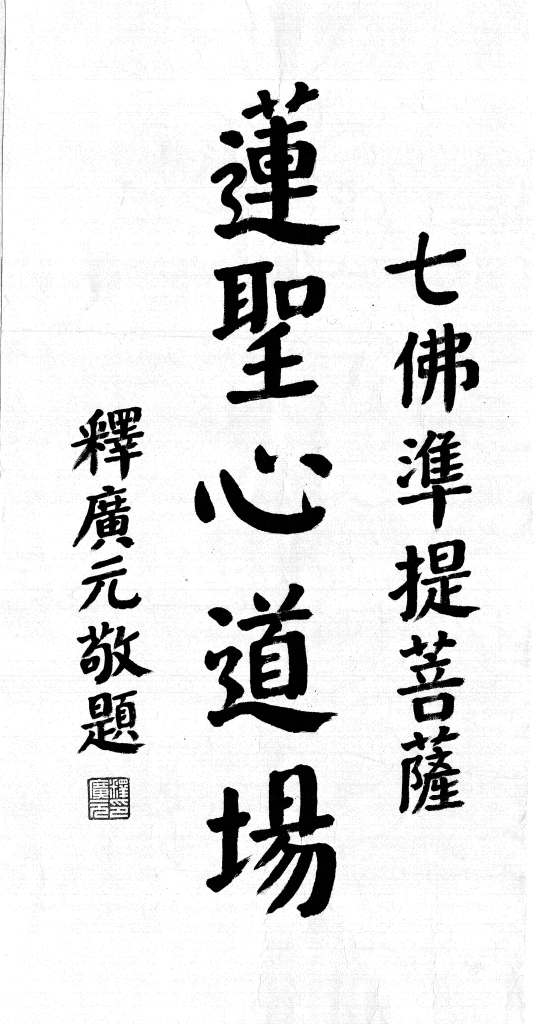 七佛準提菩薩
蓮聖心道場
釋廣元敬題
釋廣元印